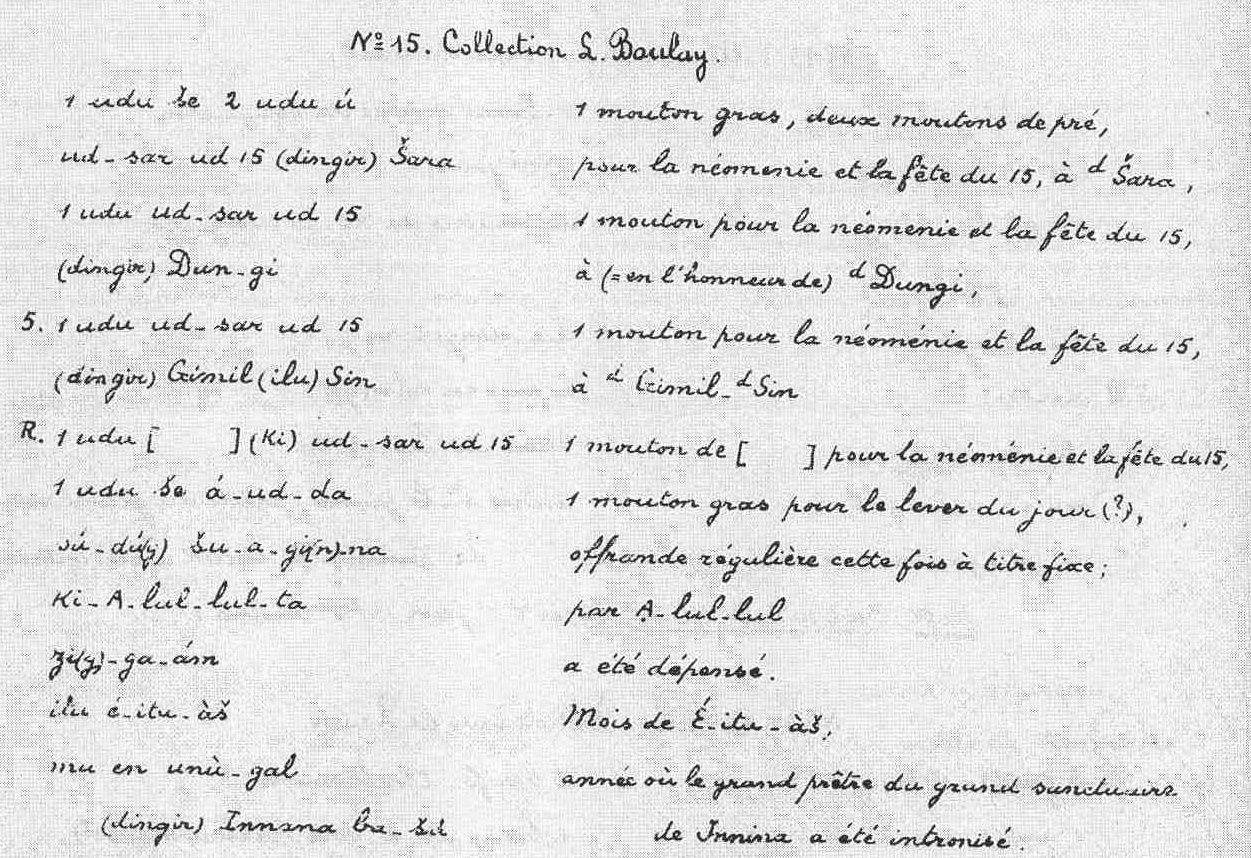 Nº 15. Collection L. Boulay.
1 udu še 2 udu ú 1 mouton gras, deux moutons de pré,
ud-sar ud 15 (dingir) Šara pour la néomenie et la fête du 15, à ᵈ Šara,
1 udu ud-sar ud 15 1 mouton pour la néoménie et la fête du 15,
(dingir) Dun-gi à (=en l'honneur de) ᵈ Dungi,
5. 1 udu ud-sar ud 15 1 mouton pour la néoménie et la fête du 15,
(dingir) Gimil (ilu) Sin à ᵈ Gimil-ᵈSin
R. 1 udu [ ] (Ki) ud-sar ud 15 1 mouton de [ ] pour la néoménie et la fête du 15,
1 udu še á-ud-da 1 mouton gras pour le lever du jour (?),
sá-dú(g) šu-a-gi(n)-na offrande régulière cette fois à titre fixe;
Ki-A-lul-lul-ta par A-lul-lul
zi(g)-ga-ám a été dépensé.
itu é-itu-àš Mois de É-itu-àš,
mu en unù-gal année où le grand prêtre du grand sanctuaire
(dingir) Innana ba- de Innina a été intronisé.